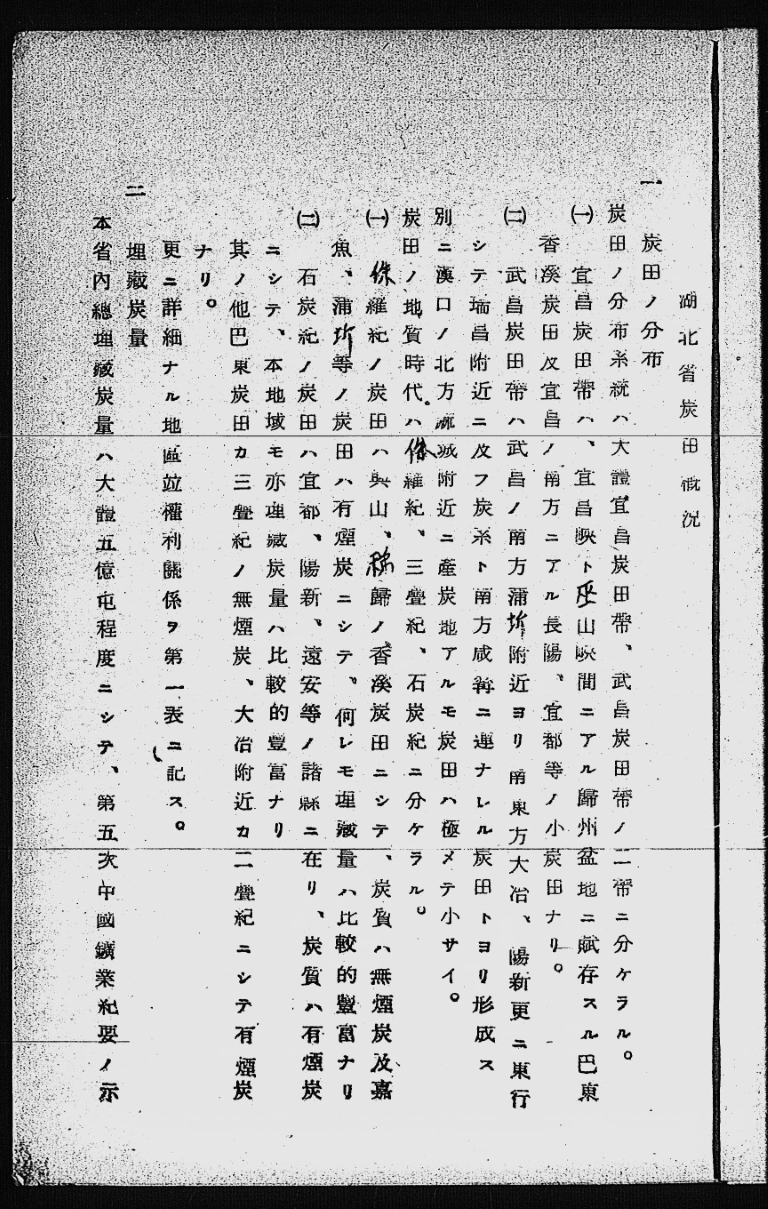 湖北省炭田概況
一　炭田ノ分布
炭田ノ分布系統ハ大體宜昌炭田帶、武昌炭田帶ノ二帶ニ分ケラル。
㈠　宜昌炭田帶ハ、宜昌峽ト巫山峽間ニアル歸州盆地ニ賦存スル巴東
香溪炭田及宜昌ノ南方ニアル長陽、宜都等ノ小炭田ナリ。
㈡　武昌炭田帶ハ武昌ノ南方蒲圻附近ヨリ南東方大冶、陽新更ニ東行
シテ瑞昌附近ニ及フ炭系ト南方咸寧ニ連ナレル炭田トヨリ形成ス
別ニ漢口ノ北方麻城附近ニ產炭地アルモ炭田ハ極メテ小サイ。
炭田ノ地質時代ハ侏羅紀、三疊紀、石炭紀ニ分ケラル。
㈠　侏羅紀ノ炭田ハ興山、秭歸ノ香溪炭田ニシテ、炭質ハ無煙炭及嘉
魚、蒲圻等ノ炭田ハ有煙炭ニシテ、何レモ埋藏量ハ比較的豐富ナリ
㈡　石炭紀ノ炭田ハ宜都、陽新、遠安等ノ諸縣ニ在リ、炭質ハ有煙炭
ニシテ、本地域モ亦埋藏炭量ハ比較的豐富ナリ
其ノ他巴東炭田カ三疊紀ノ無煙炭、大冶附近カ二疊紀ニシテ有煙炭
ナリ。
更ニ詳細ナル地區竝權利關係ヲ第一表ニ記ス。
二　埋藏炭量
本省內總埋藏炭量ハ大體五億屯程度ニシテ、第五次中國鑛業紀要ノ示